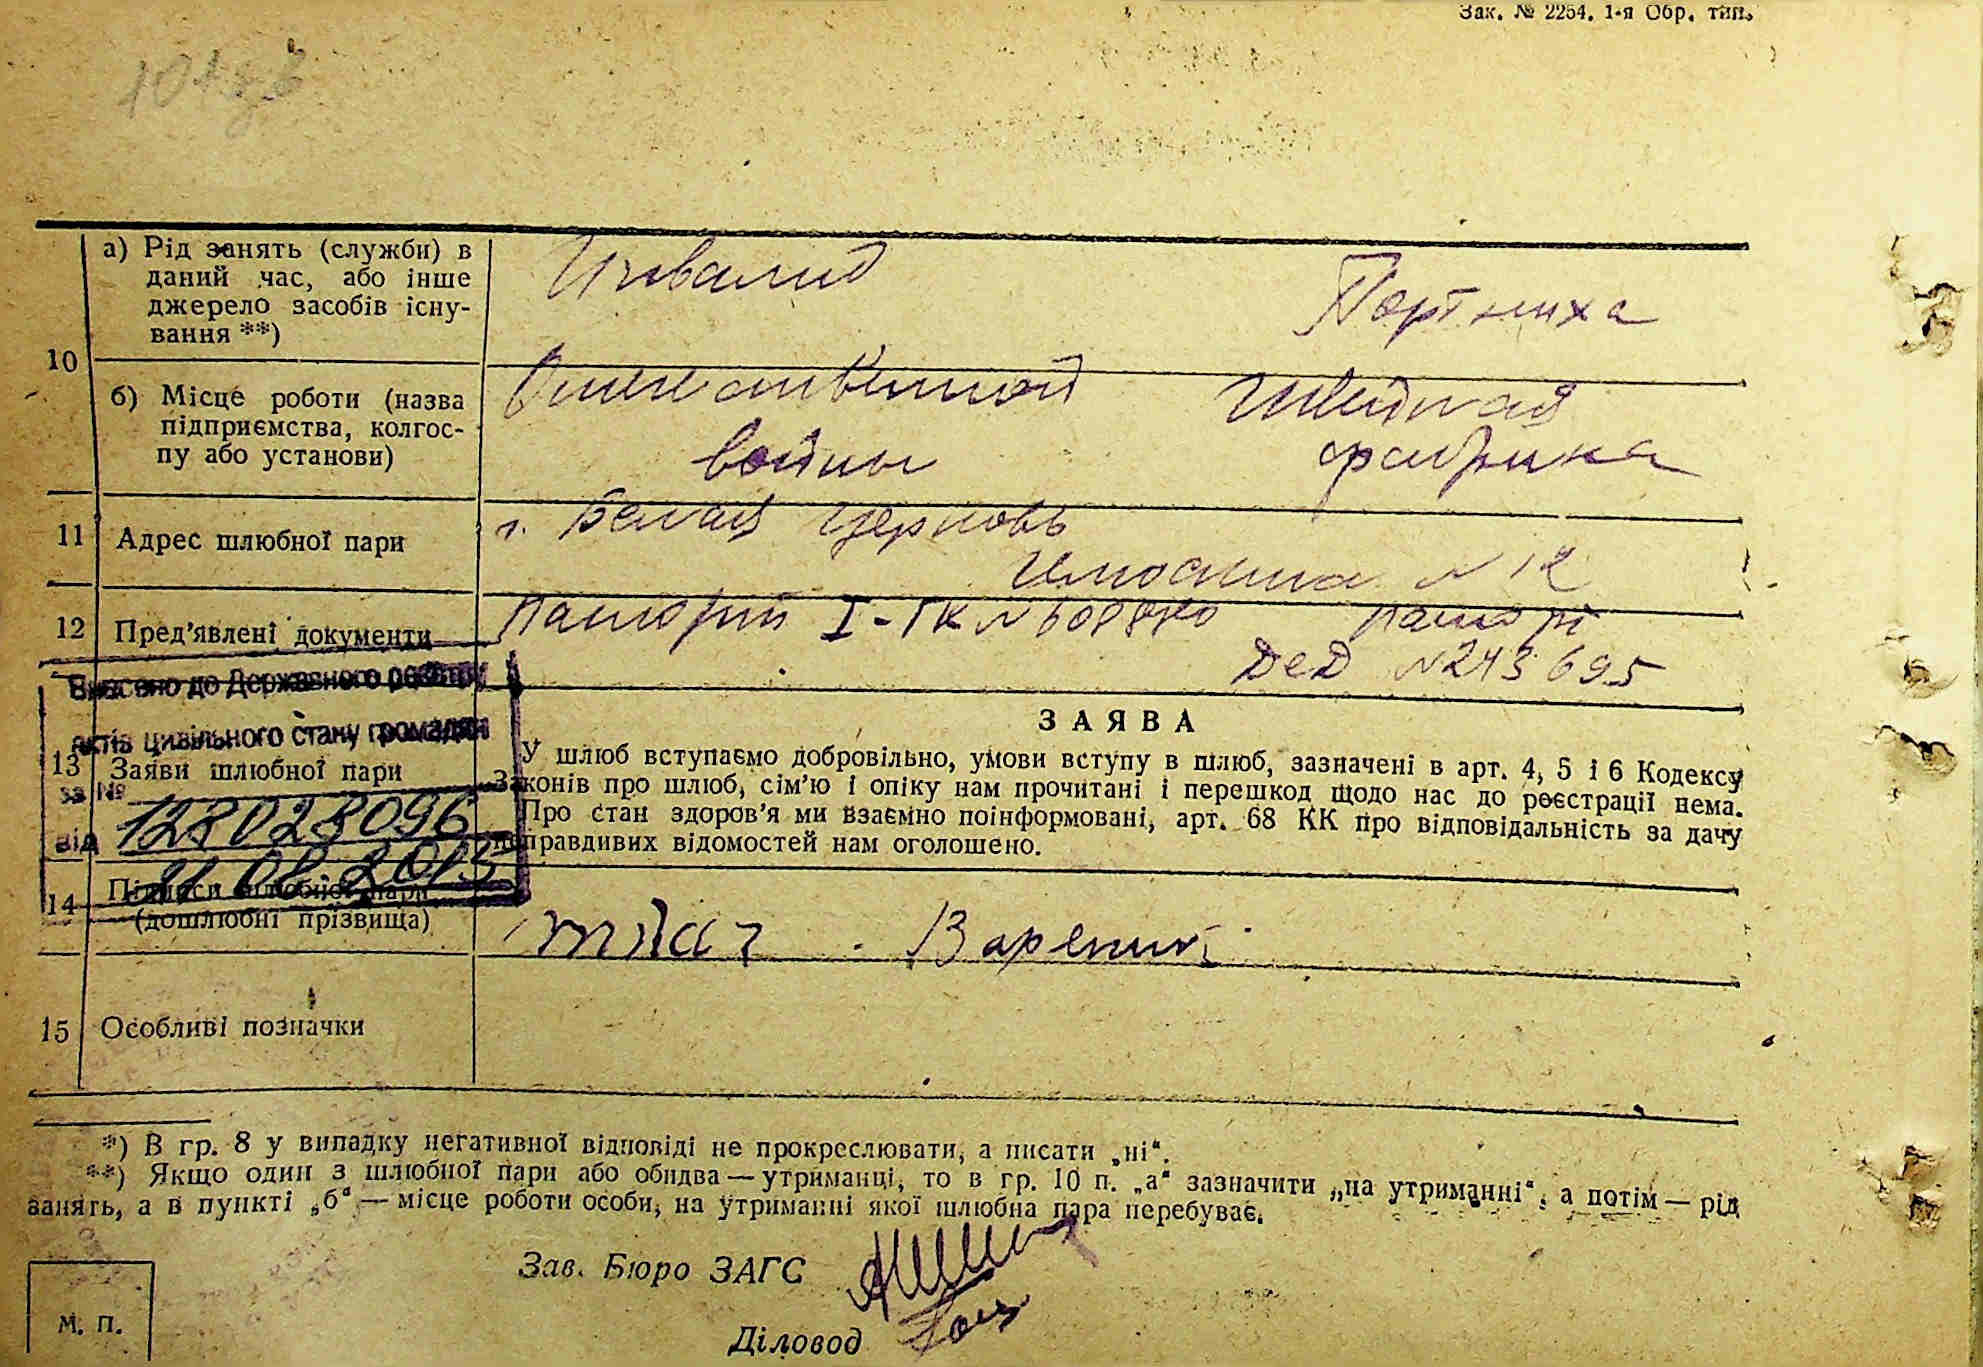 Зак. № 2254. 1-я Обр. тип.
10
а) Рід занять (служби) в
даний час, або інше
джерело засобів існу-
вання **)
Инвалид
Портниха
б) Місце роботи (назва
підприємства, колгос-
пу або установи)
Отечественной
войны
Швейная
фабрика
11 Адрес шлюбної пари
г. Белая Церковь
N 12
12 Пред'явлені документи
Паспорт I-ГК N
Паспорт
N 243695
Внесено до Державного реєстру
актів цивільного стану громадян
за №
від
13 Заяви шлюбної пари
ЗАЯВА
У шлюб вступаємо добровільно, умови вступу в шлюб, зазначені в арт. 4, 5 і 6 Кодексу
Законів про шлюб, сім'ю і опіку нам прочитані і перешкод щодо нас до реєстрації нема.
Про стан здоров'я ми взаємно поінформовані, арт. 68 КК про відповідальність за дачу
неправдивих відомостей нам оголошено.
14 Підписи шлюбної пари
(дошлюбні прізвища)
Ткач Вареник
15 Особливі позначки
*) В гр. 8 у випадку негативної відповіді не прокреслювати, а писати „ні“.
**) Якщо один з шлюбної пари або обидва — утриманці, то в гр. 10 п. „а“ зазначити „на утриманні“, а потім — рід
занять, а в пункті „б“ — місце роботи особи, на утриманні якої шлюбна пара перебуває.
Зав. Бюро ЗАГС
Діловод
М. П.